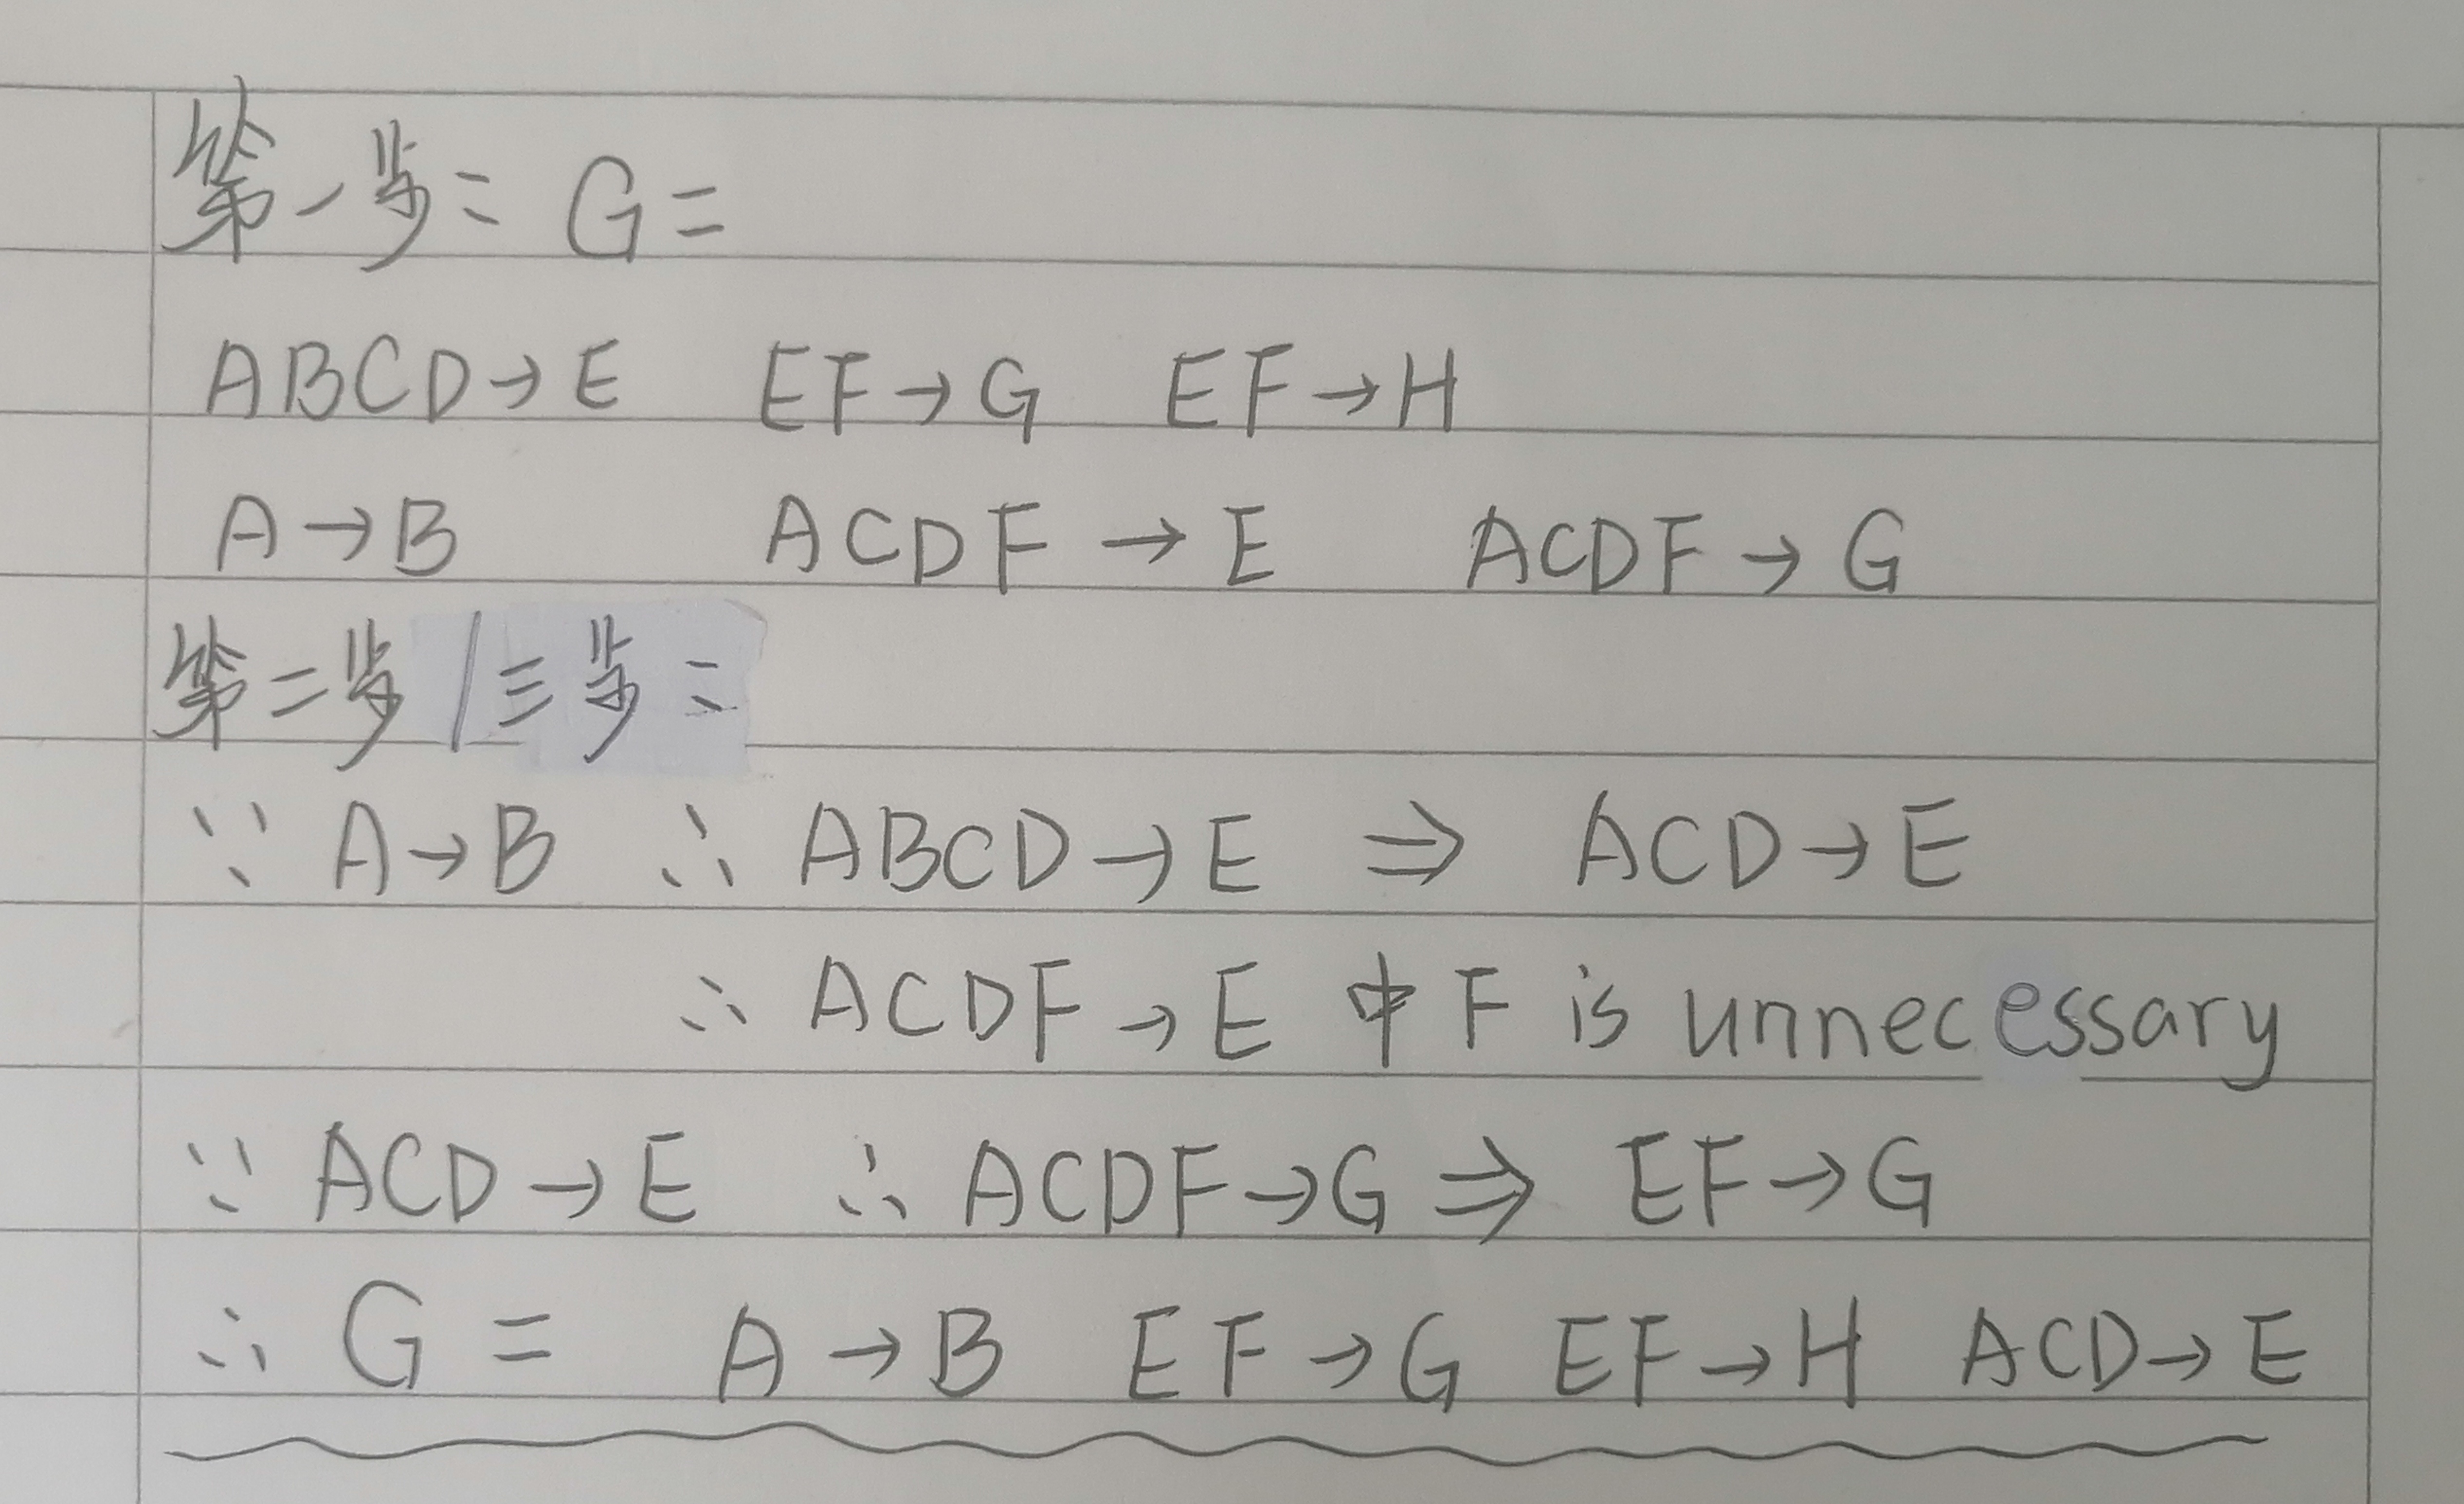 第一步: G=
ABCD→E EF→G EF→H
A→B ACDF→E ACDF→G
第二步/三步:
∵ A→B ∴ ABCD→E ⇒ ACD→E
∴ ACDF→E 中 F is unnecessary
∵ ACD→E ∴ ACDF→G ⇒ EF→G
∴ G = A→B EF→G EF→H ACD→E